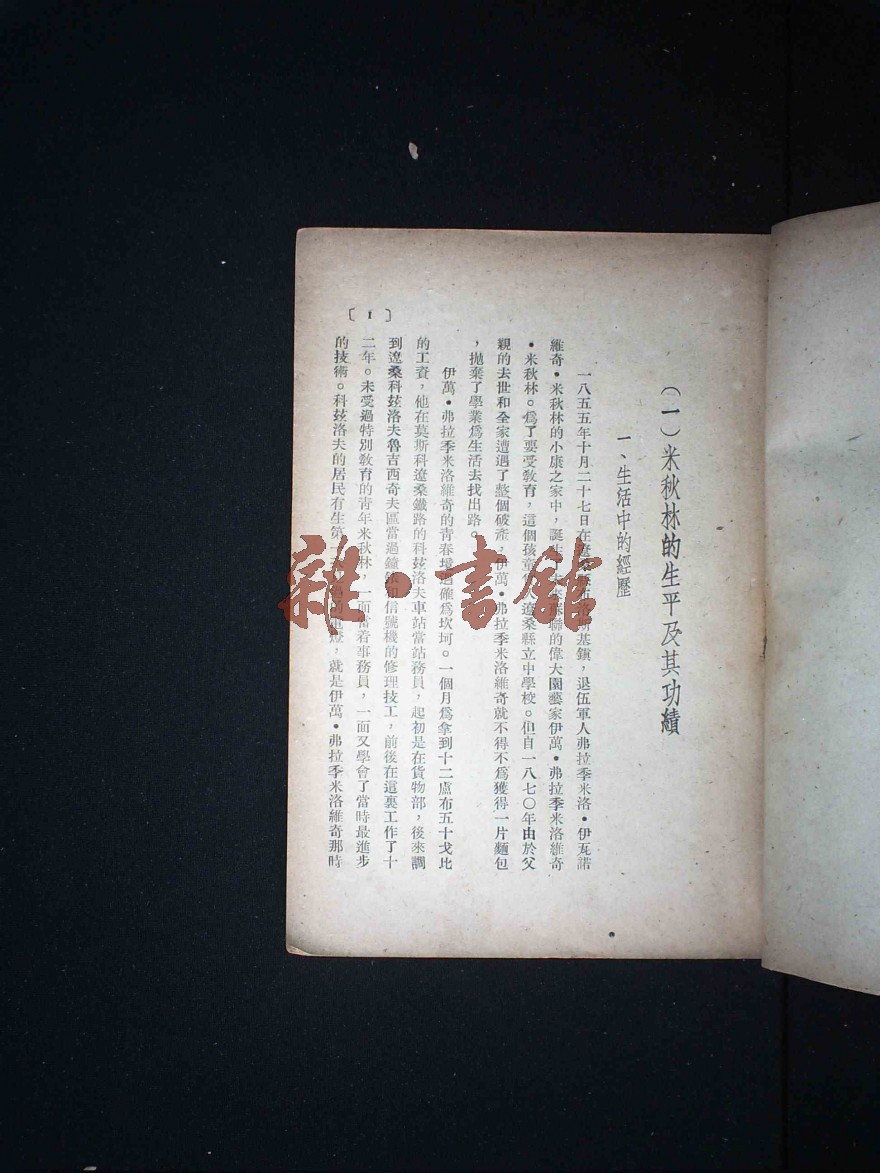 （一）米秋林的生平及其功績
一、生活中的經歷
一八五五年十月二十七日在遼桑縣 基鎮，退伍軍人弗拉季米洛•伊瓦諾
維奇•米秋林的小康之家中，誕生 蘇聯的偉大園藝家伊萬•弗拉季米洛維奇
•米秋林。爲了要受敎育，這個孩童 遼桑縣立中學校。但自一八七〇年由於父
親的去世和全家遭遇了整個破產，伊萬•弗拉季米洛維奇就不得不爲獲得一片麵包
，拋棄了學業爲生活去找出路。
伊萬•弗拉季米洛維奇的靑春境遇確爲坎坷。一個月爲拿到十二盧布五十戈比
的工資，他在莫斯科遼桑鐵路的科玆洛夫車站當站務員，起初是在貨物部，後來調
到遼桑科玆洛夫魯吉西奇夫區當過鐘錶和信號機的修理技工，前後在這裏工作了十
二年。未受過特別敎育的靑年米秋林，一面當着事務員，一面又學會了當時最進步
的技術。科玆洛夫的居民有生第一 電燈，就是伊萬•弗拉季米洛維奇那時
〔1〕
雜•書館